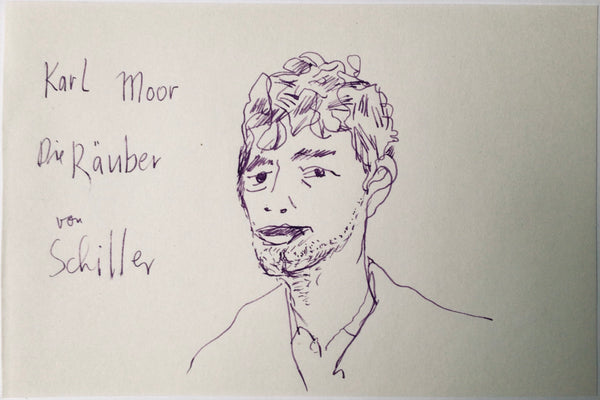 Karl Moor
Die Räuber
von
Schiller